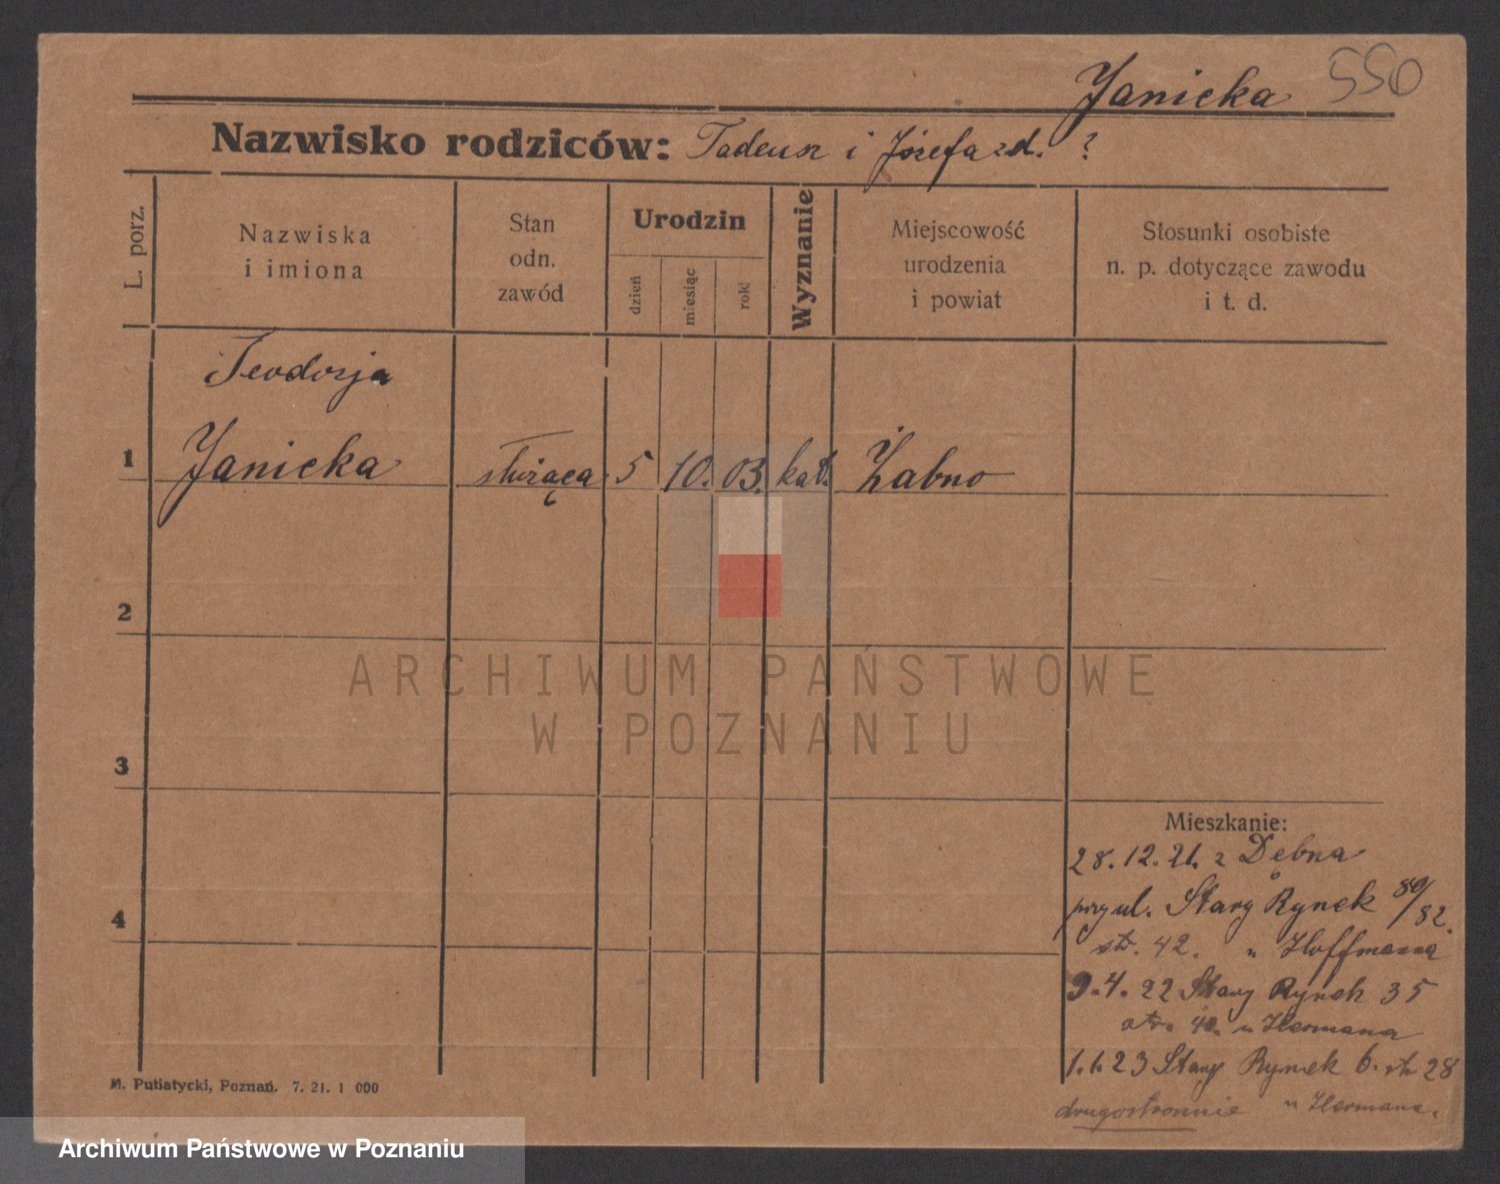 Janicka 550
Nazwisko rodziców: Tadeusz i Józefa zd. ?
L. porz.
Nazwiska
i imiona
Stan
odn.
zawód
Urodzin
dzień
miesiąc
rok
Wyznanie
Miejscowość
urodzenia
i powiat
Stosunki osobiste
n. p. dotyczące zawodu
i t. d.
Teodozja
1 Janicka służąca 5 10. 03. kat. Żabno
2
ARCHIWUM PAŃSTWOWE
W POZNANIU
3
Mieszkanie:
28.12.21. z Dębna
przy ul. Stary Rynek 80/82.
str. 42. u Hoffmanna
9.4.22 Stary Rynek 35
str. 42. u Hermana
1.1.23 Stary Rynek 6. str. 28
drugostronnie u Hermana.
4
M. Putiatycki, Poznań. 7. 21. 1 000
Archiwum Państwowe w Poznaniu